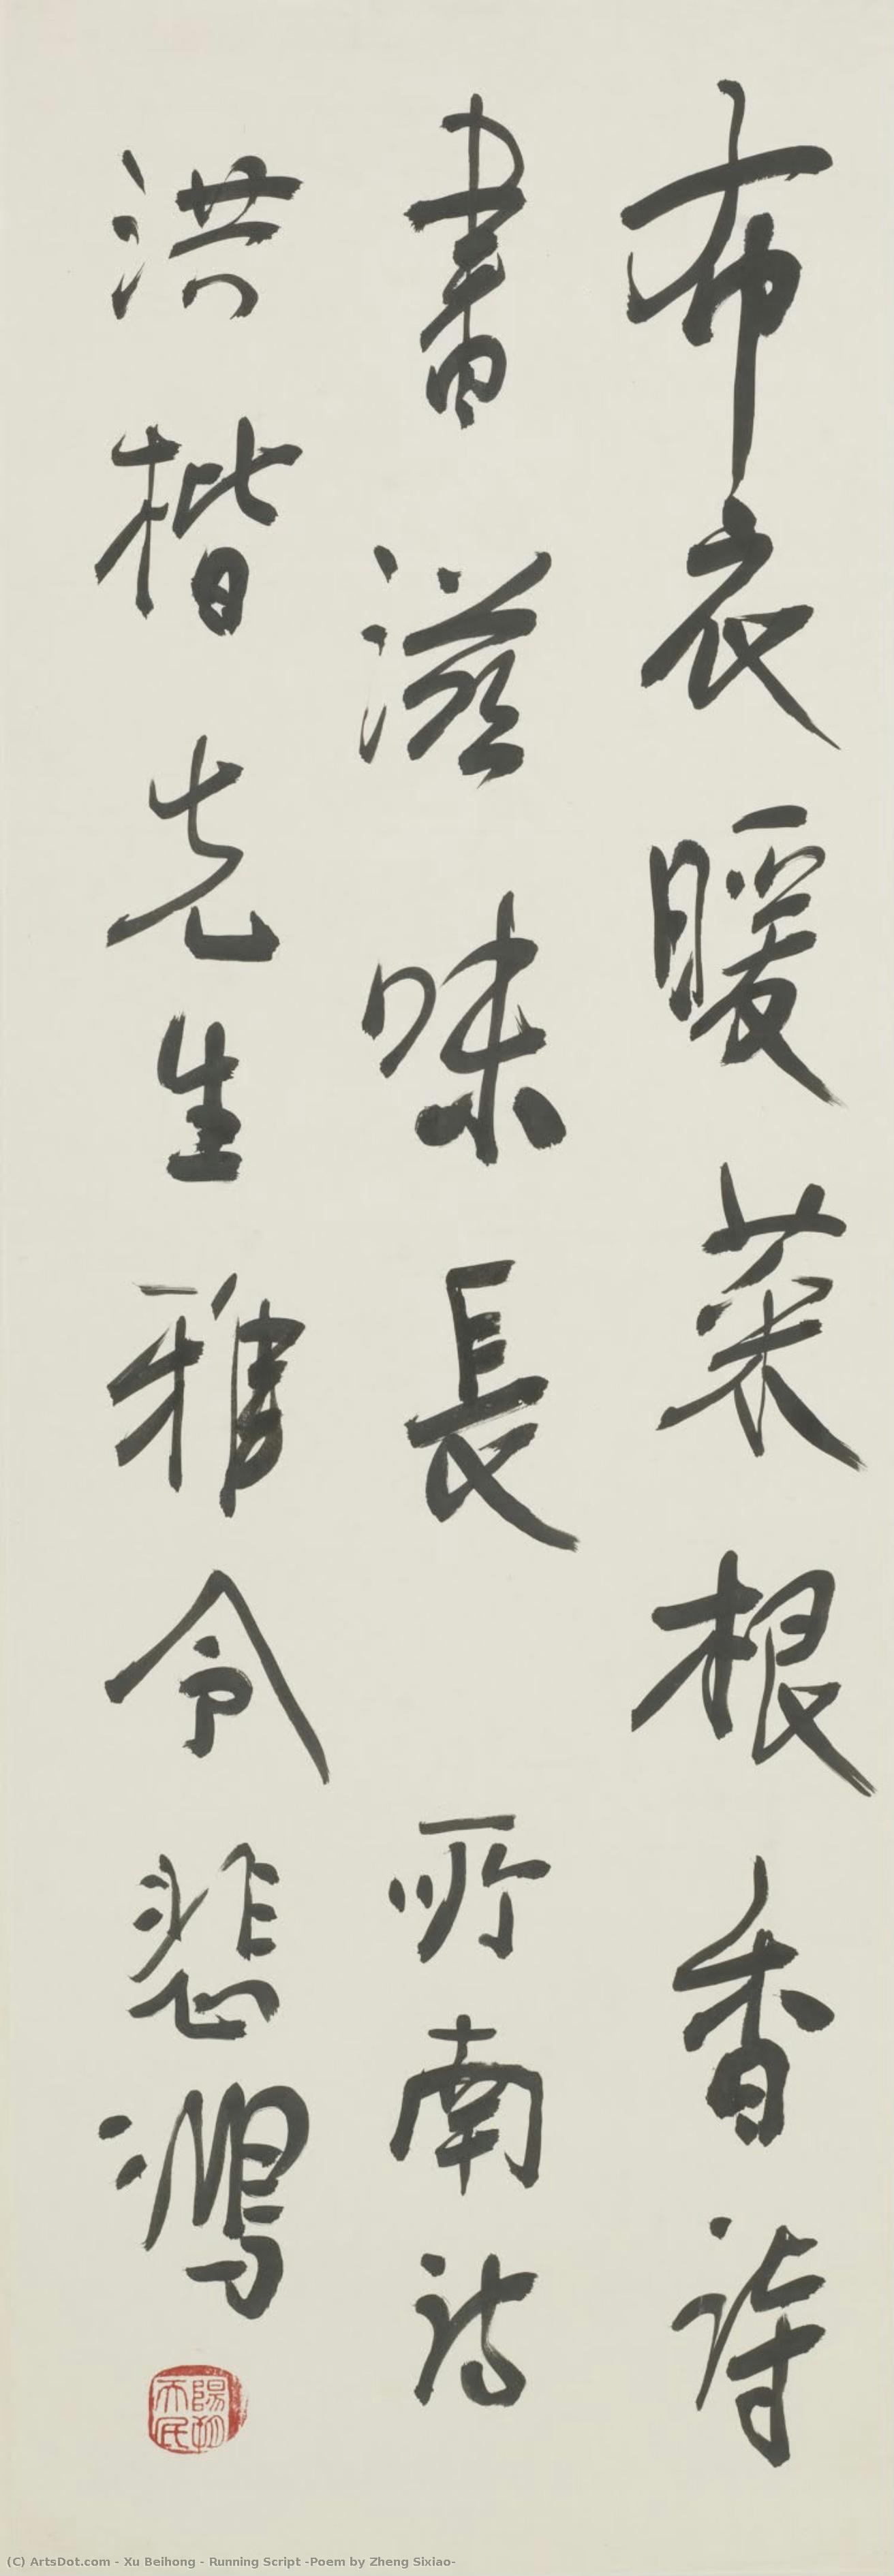 布衣暖菜根香詩
書滋味長　所南詩
洪楷先生雅令悲鴻
陽朔天民
(C) ArtsDot.com - Xu Beihong - Running Script -Poem by Zheng Sixiao-